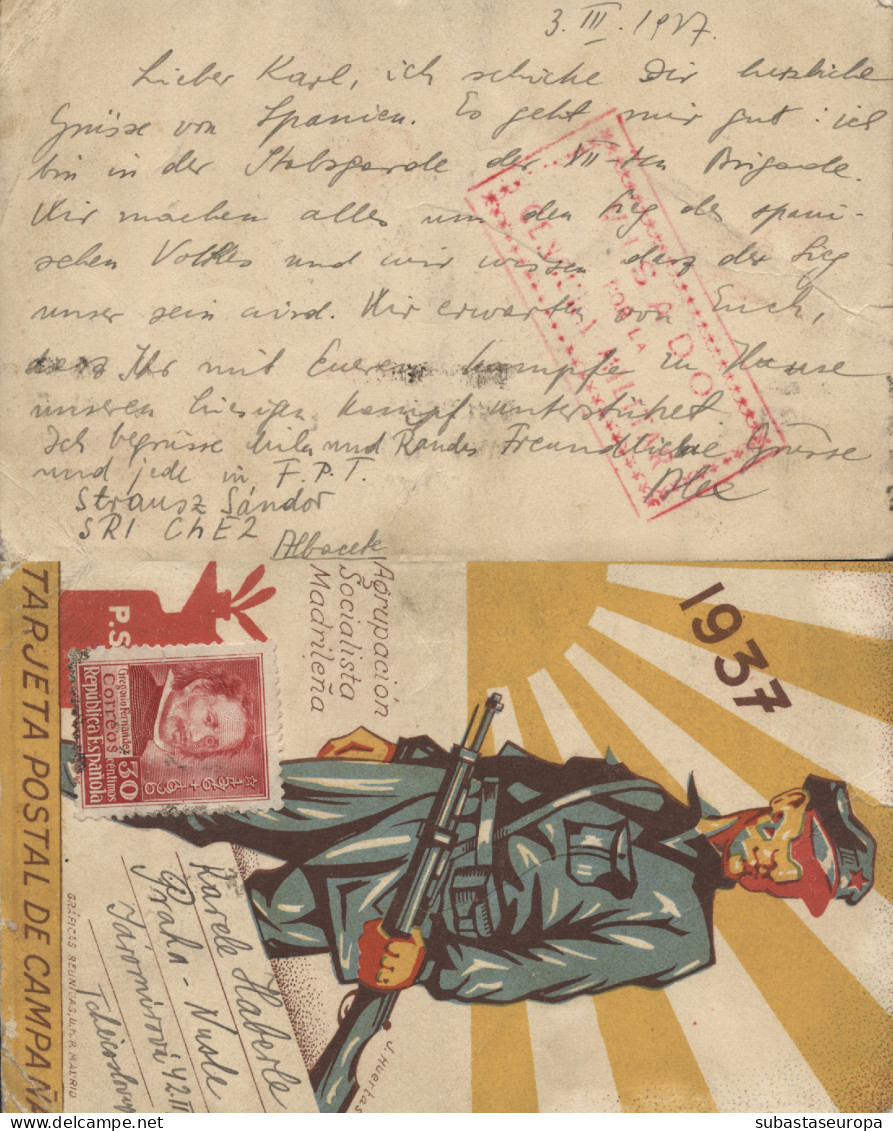 3. III. 1937.
Lieber Karl, ich schicke Dir herzliche
Grüsse von Spanien. Es geht mir gut: ich
bin in der Stabsgarde der XII-ten Brigade.
Wir machen alles um den Sieg des spani-
schen Volkes und wir wissen dasz der Sieg
unser sein wird. Wir erwarten von Euch,
dasz Ihr mit Eueren Kampfe zu Hause
unseren hiesigen Kampf unterstützet
Ich begrüsse und Freundliche Grüsse
und jede in F.P.T. Alex
Strausz Sándor
SRI ChE2
Albacete
VISADO
POR LA
CENSURA MILITAR
TARJETA POSTAL DE CAMPAÑA
P.S
Agrupación
Socialista
Madrileña
1937
Gregorio Fernandez
CORREOS
30 centimos
República Española
1566 + 1636
Karele Haberle
Praha - Nusle
Jaromirova 42.II
GRÁFICAS REUNIDAS, U.H.P. MADRID
J. Huertas
subastaseuropa